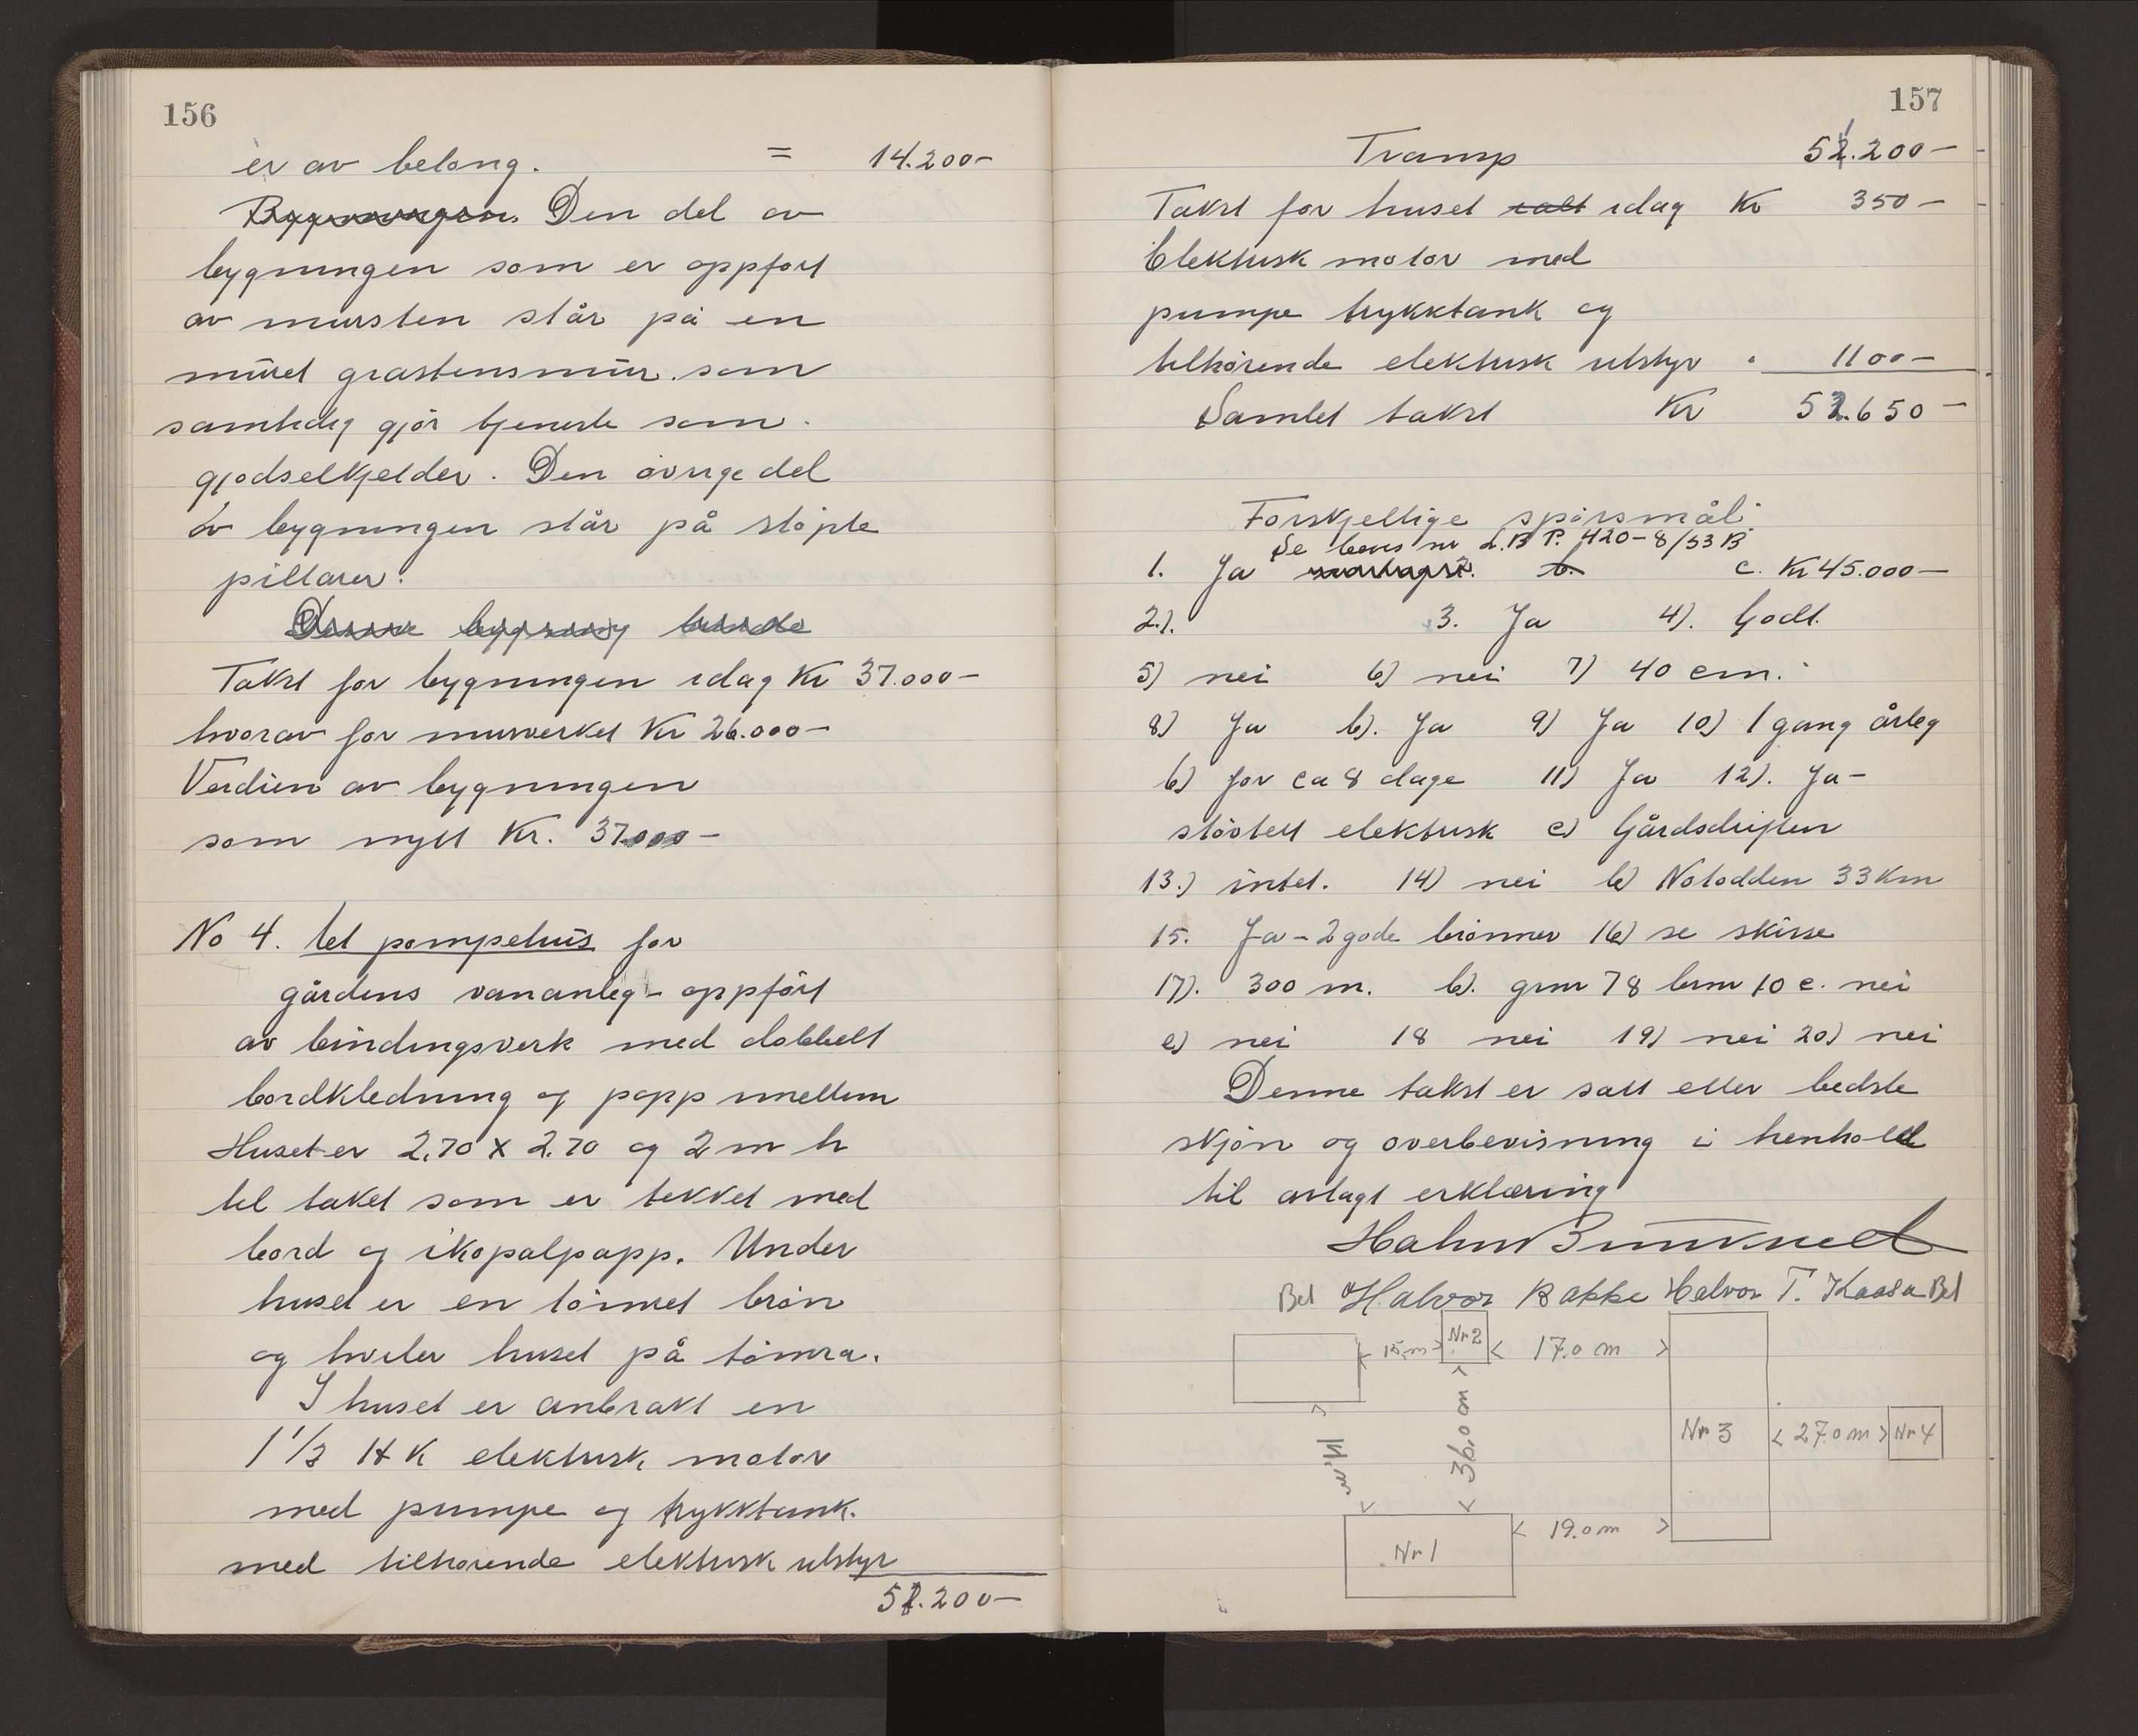 156
er av belang. = 14.200-
Bygningen. Den del av
bygningen som er oppført
av mursten står på en
muret gråstensmur som
samtidig gjör tjeneste som
gjødselkjelder. Den övrige del
av bygningen står på støpte
pillarer.
Denne bygning
Takst for bygningen idag Kr 37.000-
hvorav for murverket Kr 26.000-
Verdien av bygningen
som nytt Kr. 37.000-
No 4. Et pompehus for
gårdens vananleg - oppfört
av bindingsverk med dobbelt
bordkledning og papp imellem
Huset er 2,70 x 2,70 og 2 m h
til taket som er tekket med
bord og ikopalpapp. Under
huset er en tömret brön
og hviler huset på tömra.
I huset er anbrakt en
1 1/2 HK elektrisk motor
med pumpe og trykktank.
med tilhorende elektrisk utstyr
51.200-
157
Transp 51.200-
Takst for huset ialt idag Kr 350-
Elektrisk motor med
pumpe trykktank og
tilhörende elektrisk utstyr " 1100-
Samlet takst Kr 52.650-
Forskjellige spörsmål:
Se bevis nr L.B P. 420-8/53 B
1. Ja b. c. Kr 45.000-
2.). 3. Ja 4). Godt.
5) nei 6) nei 7) 40 cm.
8) Ja b). Ja 9) Ja 10) 1 gang årleg
b) for ca 8 dage 11) Ja 12). Ja-
elektrisk c) Gårdsdriften
13.) intet. 14) nei b) Notodden 33 Km
15. Ja - 2 gode brönner 16) se skisse
17). 300 m. b). gnr 78 bnr 10 c. nei
e) nei 18 nei 19) nei 20) nei
Denne takst er satt etter bedste
skjön og overbevisning i henhold
til avlagt erklæring
Bet Halvor Bakke Halvor T. Kaasa Bet
15,m Nr 2 17.0 m
36.0 m
Nr 3 27.0 m Nr 4
19.0 m
Nr 1